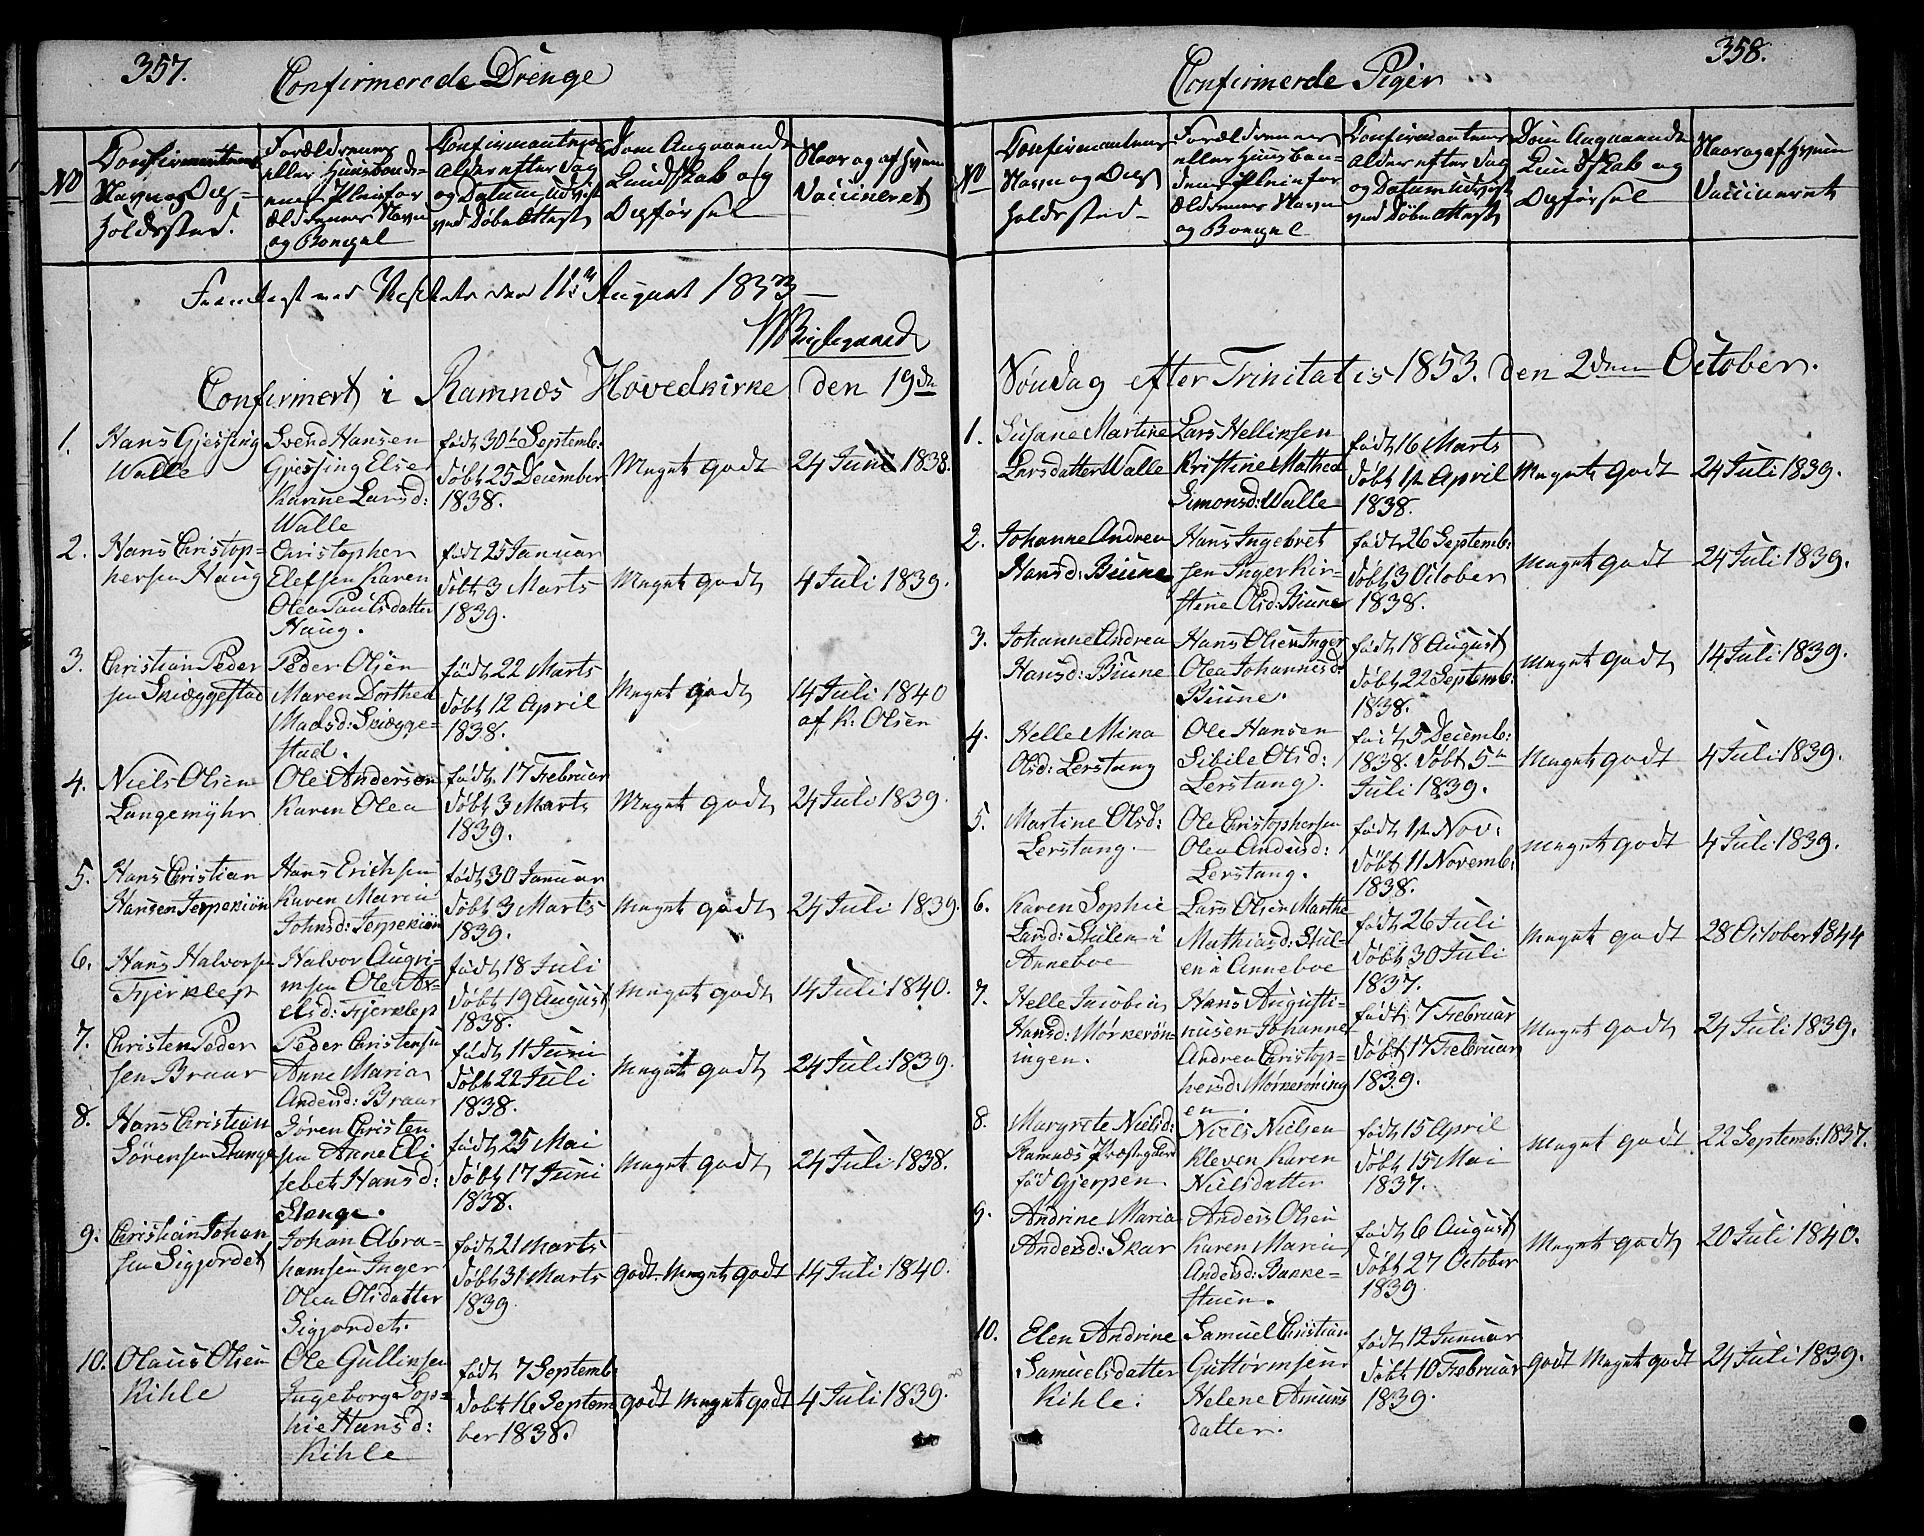 357.
Confirmerede Drenge
No
Confirmanternes
Navn og Op-
holdssted.
Forældrenes
eller Huusbond-
ens Pleiefor
ældrenes Navn
og Bopæl
Confirmanternes
Alder efter Dag
og Datum udvist
ved Døbe Attest
Dom Angaaende
Kundskab og
Opførsel
Naar og af hvem
Vaccineret
Fremlagt ved Visitats den 11te August 1853
Confirmert i Ramnæs Hovedkirke den 19de
1.
Hans Gjessing
Walle
Svend Hansen
Gjessing Else
Karine Larsd:
Walle
født 30te Septemb:
døbt 25 December
1838.
Meget godt
24 Juni 1838.
2.
Hans Christop-
hersen Haug
Christopher
Elefsen Karen
Olea Paulsdatter
Haug.
født 25 Januar
døbt 3 Marts
1839.
Meget godt
4 Juli 1839.
3.
Christian Peder
sen Skiæggestad
Peder Olsen
Maren Dorthea
Madsd: Skiægge-
stad.
født 22 Marts
døbt 12 April
1838.
Meget godt
14 Juli 1840
af K. Olsen
4.
Niels Olsen
Langemyhr
Ole Andersen
Karen Olea
født 17 Februar
døbt 3 Marts
1839.
Meget godt
24 Juli 1839.
5.
Hans Christian
Hansen Jerpekiön
Hans Erichsen
Karen Maria
Johnsd: Jerpekiön
født 30 Januar
døbt 3 Marts
1839.
Meget godt
24 Juli 1839.
6.
Hans Halvorsen
Fjerklep
Halvor Augri-
msen Ole Ax-
elsd: Fjerklep
født 18 Juli
døbt 19 August
1838.
Meget godt
14 Juli 1840.
7.
Christen Peder
sen Braar
Peder Christensen
Anne Maria
Andersd: Braar
født 11 Juni
døbt 22 Juli
1838.
Meget godt
24 Juli 1839.
8.
Hans Christian
Sörensen Stange
Sören Christen
sen Anne Eli
sebet Hansd:
Stange.
født 25 Mai
døbt 17 Juni
1838.
Meget godt
24 Juli 1838.
9.
Christian Johan
sen Sigjordet
Johan Abra-
hamsen Inger
Olea Olsdatter
Sigjordet.
født 21 Marts
døbt 31 Marts
1839.
godt. Meget godt
14 Juli 1840.
10.
Olaus Olsen
Kihle
Ole Gullinsen
Ingeborg Sop-
hie Hansd:
Kihle
født 7 Septemb:
døbt 16 Septem
ber 1838.
godt Meget godt
4 Juli 1839.
358.
Confirmerde Piger
No
Confirmanternes
Navn og Op-
holdssted-
Forældrenes
eller Huusbon-
dens Pleiefor
ældrenes Navn
og Bopæl
Confirmanternes
Alder efter Dag
og Datum udvist
ved Døbe Attest
Dom Angaaende
Kundskab og
Opførsel
Naar og af hvem
Vaccineret
Søndag efter Trinitatis 1853. den 2den October.
1.
Susane Martine
Larsdatter Walle
Lars Hellinsen
Kristine Mathea
Simonsd: Walle
født 16 Marts
døbt 1te April
1838.
Meget godt
24 Juli 1839.
2.
Johanne Andrea
Hansd: Biune
Hans Ingebret
sen Inger Kir-
stine Olsd: Biune
født 26 Septemb:
døbt 3 October
1838.
Meget godt
24 Juli 1839.
3.
Johanne Andrea
Hansd: Biune
Hans Olsen Inger
Olea Johannisd:
Biune.
født 18 August
døbt 22 Septemb:
1838.
Meget godt
14 Juli 1839.
4.
Helle Mina
Olsd: Lerstang
Ole Hansen
Sibile Olsd:
Lerstang.
født 5 Decemb:
1838. døbt 5te
Juli 1839.
Meget godt
4 Juli 1839.
5.
Martine Olsd:
Lerstang.
Ole Christophersen
Olea Andersd:
Lerstang.
født 1te Nov:
døbt 11 Novemb:
1838.
Meget godt
4 Juli 1839.
6.
Karen Sophie
Larsd: Stulen i
Anneboe
Lars Olsen Marthe
Mathiasd: Stul-
en i Anneboe
født 26 Juli
døbt 30 Juli
1837.
Meget godt
28 October 1844
7.
Helle Jacobin
Hansd: Mørkerön-
ingen.
Hans Augusti-
nusen Johanne
Andrea Christop-
hersd: Mørkeröning
en.
født 7 Februar
døbt 17 Februar
1839.
Meget godt
24 Juli 1839.
8.
Margrete Nielsd:
Ramnæs Præstegaard
fød Gjerpen.
Niels Nielsen
Kleven Karen
Nielsdatter
født 15 April
døbt 15 Mai
1837.
Meget godt
22 Septemb: 1837.
9.
Andrine Maria
Andersd: Skar
Anders Olsen
Karen Maria
Andersd: Bakke-
stuen.
født 6 August
døbt 27 October
1839
Meget godt
20 Juli 1840.
10.
Elen Andrine
Samuelsdatter
Kihle.
Samuel Christian
Guttormsen
Helene Amuns
datter.
født 12 Januar
døbt 10 Februar
1839.
godt Meget godt
24 Juli 1839.